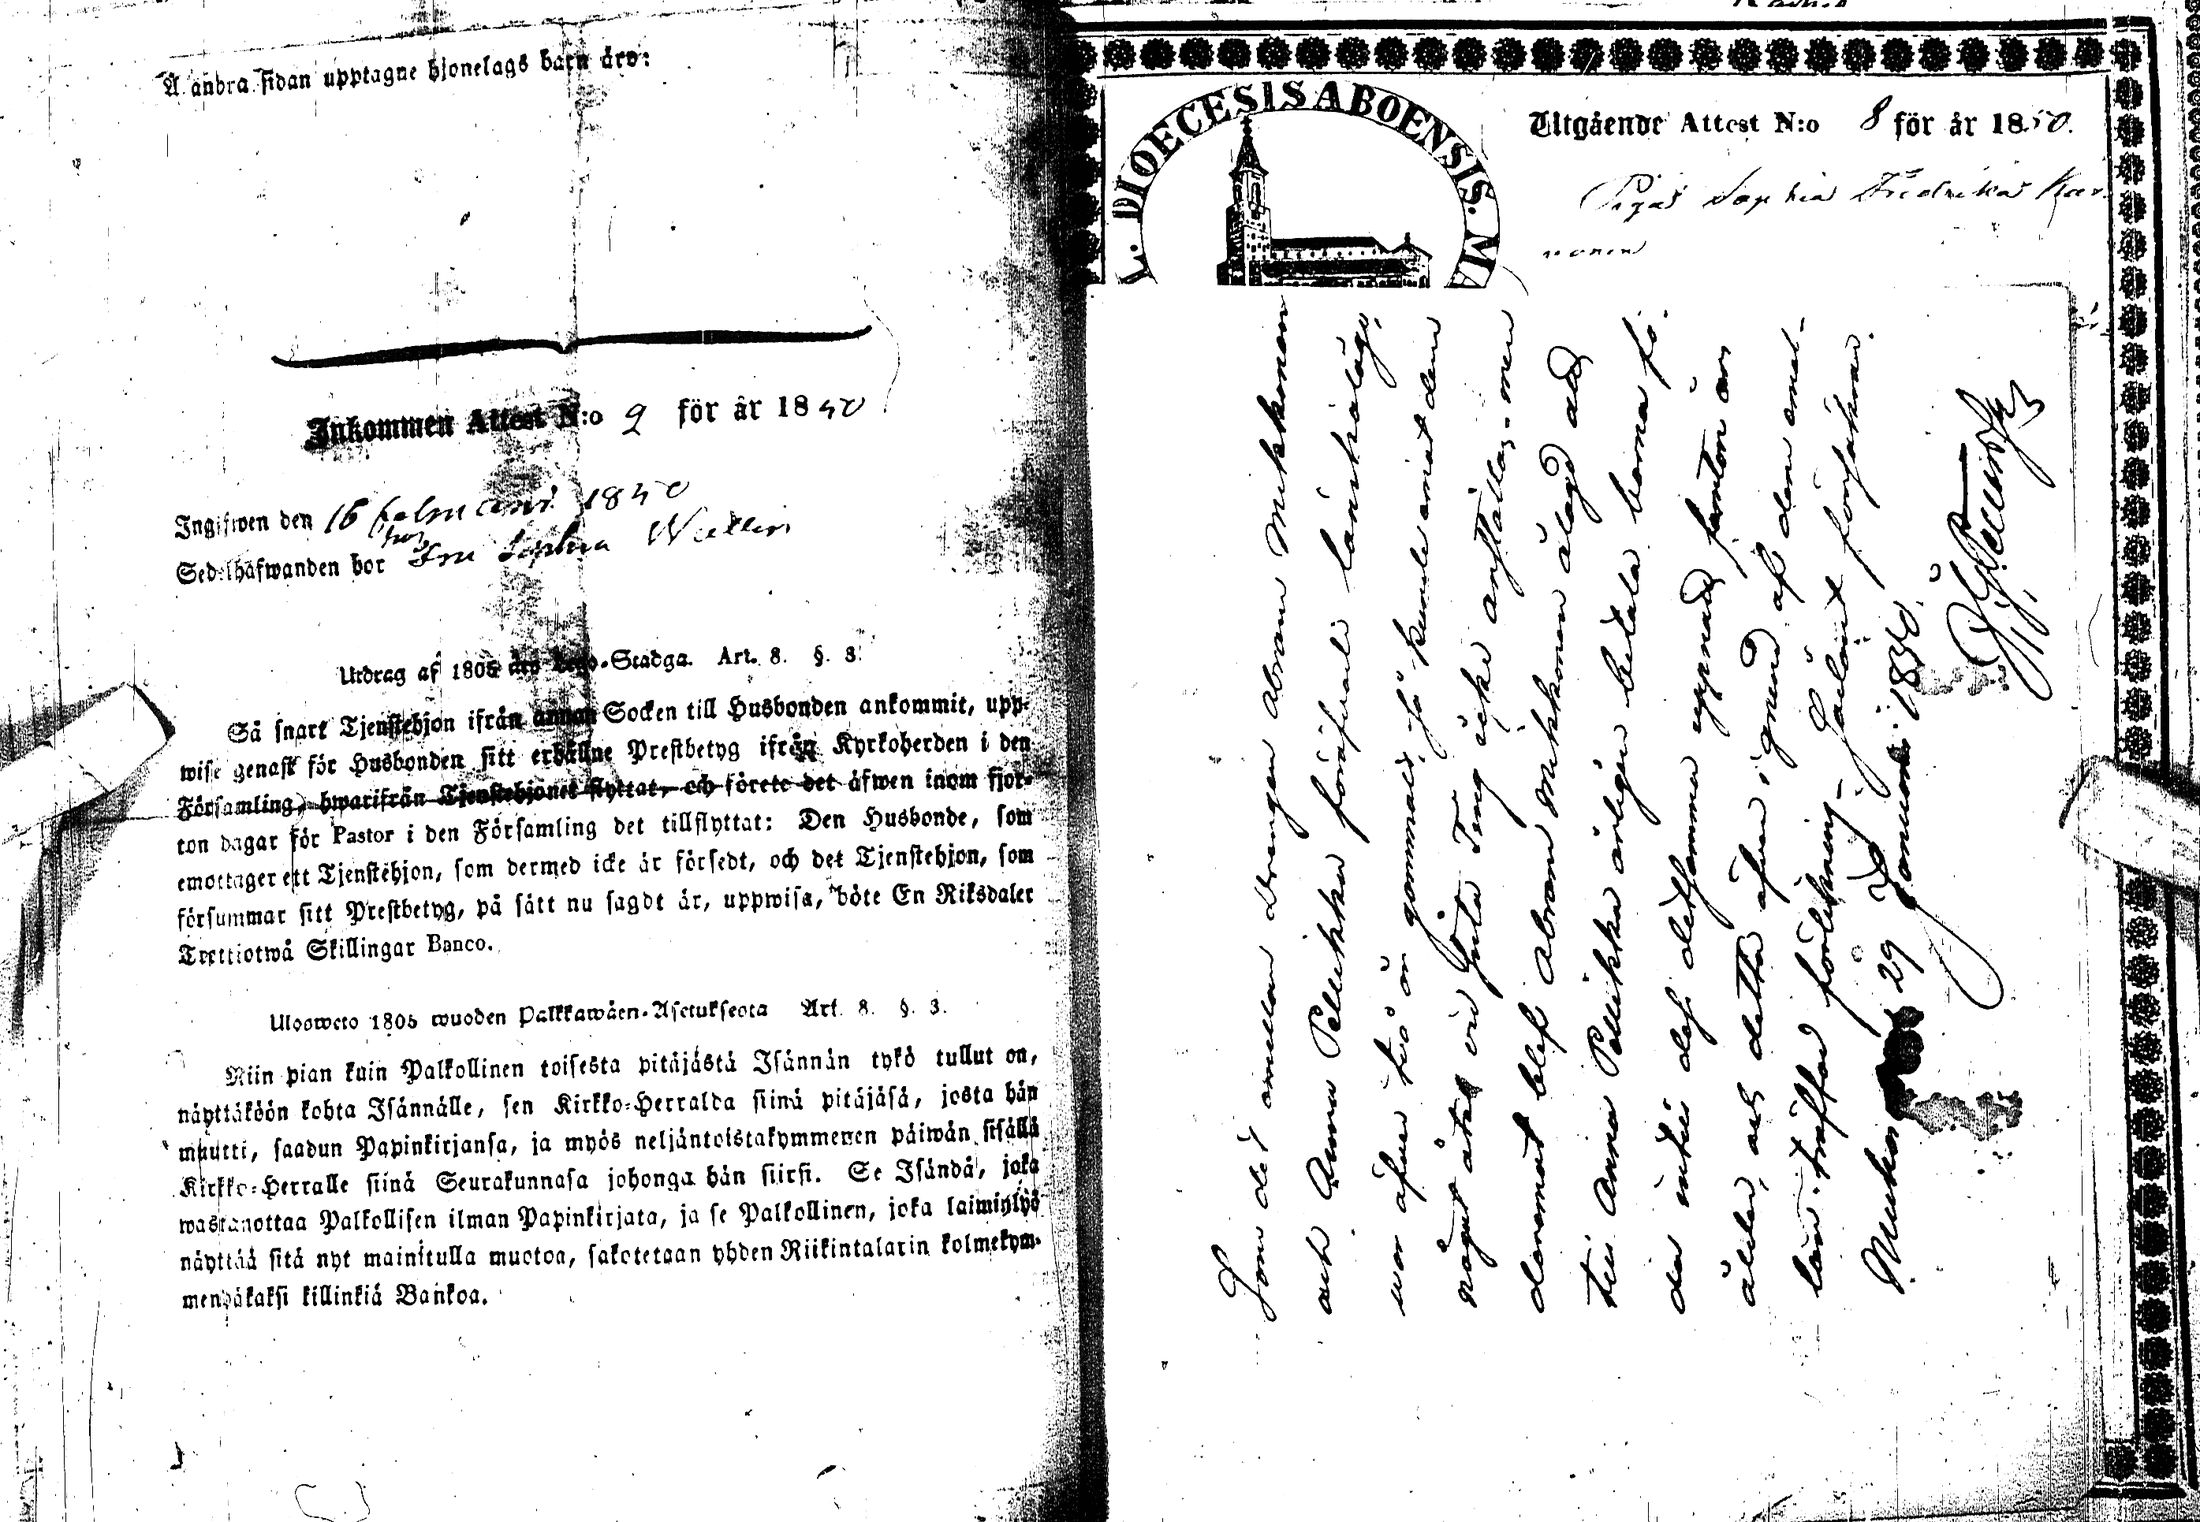 Å andra sidan upptagne hjonelags barn äro:
Inkommen Attest N:o 9 för år 1850
Ingifwen den 16 februari 1850
Sedelhafwanden bor hos Fru Sophia Wallin
Utdrag af 1805 års Lego-Stadga. Art. 8. §. 3.
Så snart Tjenstehjon ifrån annan Socken till Husbonden ankommit, upp-
wise genast för Husbonden sitt erhållne Prestbetyg ifrån Kyrkoherden i den
Församling, hwarifrån Tjenstehjonet flyttat, och förete det äfwen inom fjor-
ton dagar för Pastor i den Församling det tillflyttat: Den Husbonde, som
emottager ett Tjenstehjon, som dermed icke är försedt, och det Tjenstehjon, som
försummar sitt Prestbetyg, på sätt nu sagdt är, uppwisa, böte En Riksdaler
Trettiotwå Skillingar Banco.
Ulosweto 1805 wuoden Palkkawäen-Asetuksesta Art. 8. §. 3.
Niin pian kuin Palkollinen toisesta pitäjästä Isännän tykö tullut on,
näyttäköön kohta Isännälle, sen Kirkko-Herralda siinä pitäjäsä, josta hän
muutti, saadun Papinkirjansa, ja myös neljäntoistakymmenen päiwän sisällä
Kirkko-Herralle siinä Seurakunnasa johonga hän siirsi. Se Isändä, joka
wastanottaa Palkollisen ilman Papinkirjata, ja se Palkollinen, joka laiminlyö
näyttää sitä nyt mainitulla muotoa, sakotetaan yhden Riikintalarin kolmekym-
mendäkaksi killinkiä Bankoa.
L. DIOECESIS ABOENSIS. MA
Utgående Attest N:o 8 för år 1850.
Pigan Sophia Fredrika Kar
nonen
Som det emellan Drengen Abram Mikkonen
och Anna Pellikka föräfvade lönskaläge,
var äfven två år gammalt, så kunde emot dem
något åtal vid Ting icke anställas, men
daremot blef Abram Mikkonen ålagd att
till Anna Pellikka årligen betala barna fö-
da intill dess detsamma uppnått femton års
ålder, och detta äfven i grund af dem emel-
lan träffad förlikning
29 Januari 1850.